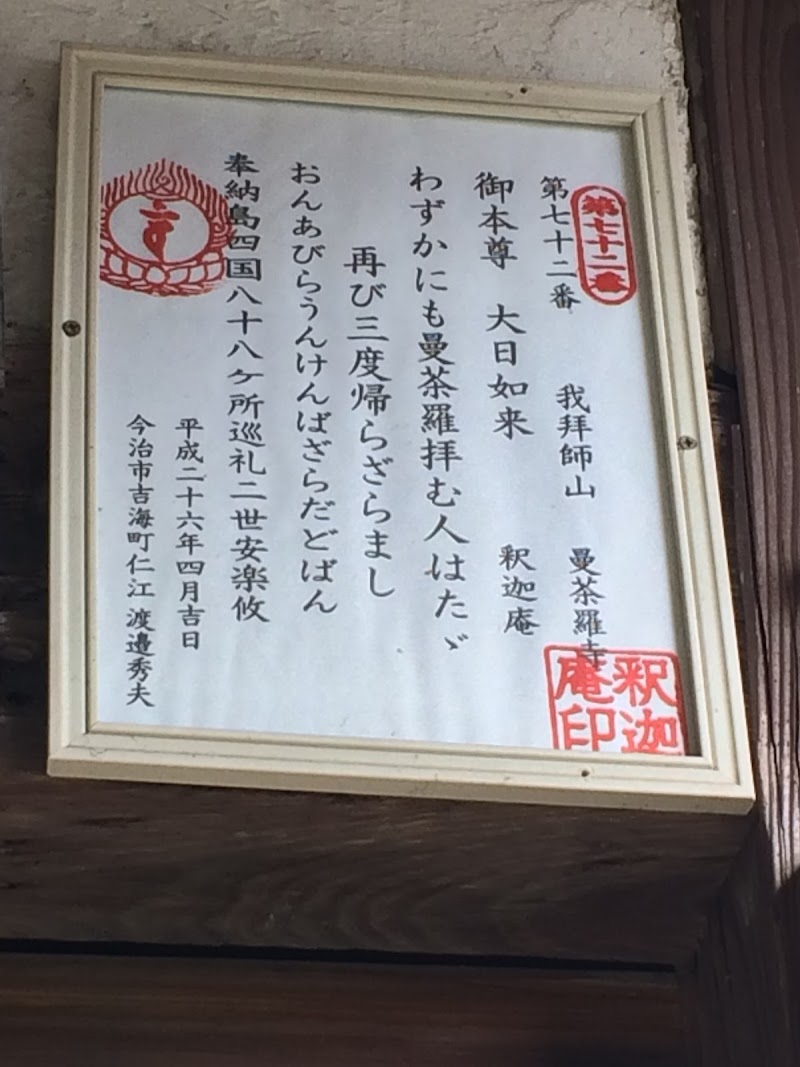 第七十二番
第七十二番 我拝師山 曼荼羅寺
御本尊 大日如来 釈迦庵
わずかにも曼荼羅拝む人はたゞ
再び三度帰らざらまし
おんあびらうんけんばざらだどばん
奉納島四国八十八ケ所巡礼二世安楽攸
平成二十六年四月吉日
今治市吉海町仁江 渡邉秀夫
釈迦
庵印